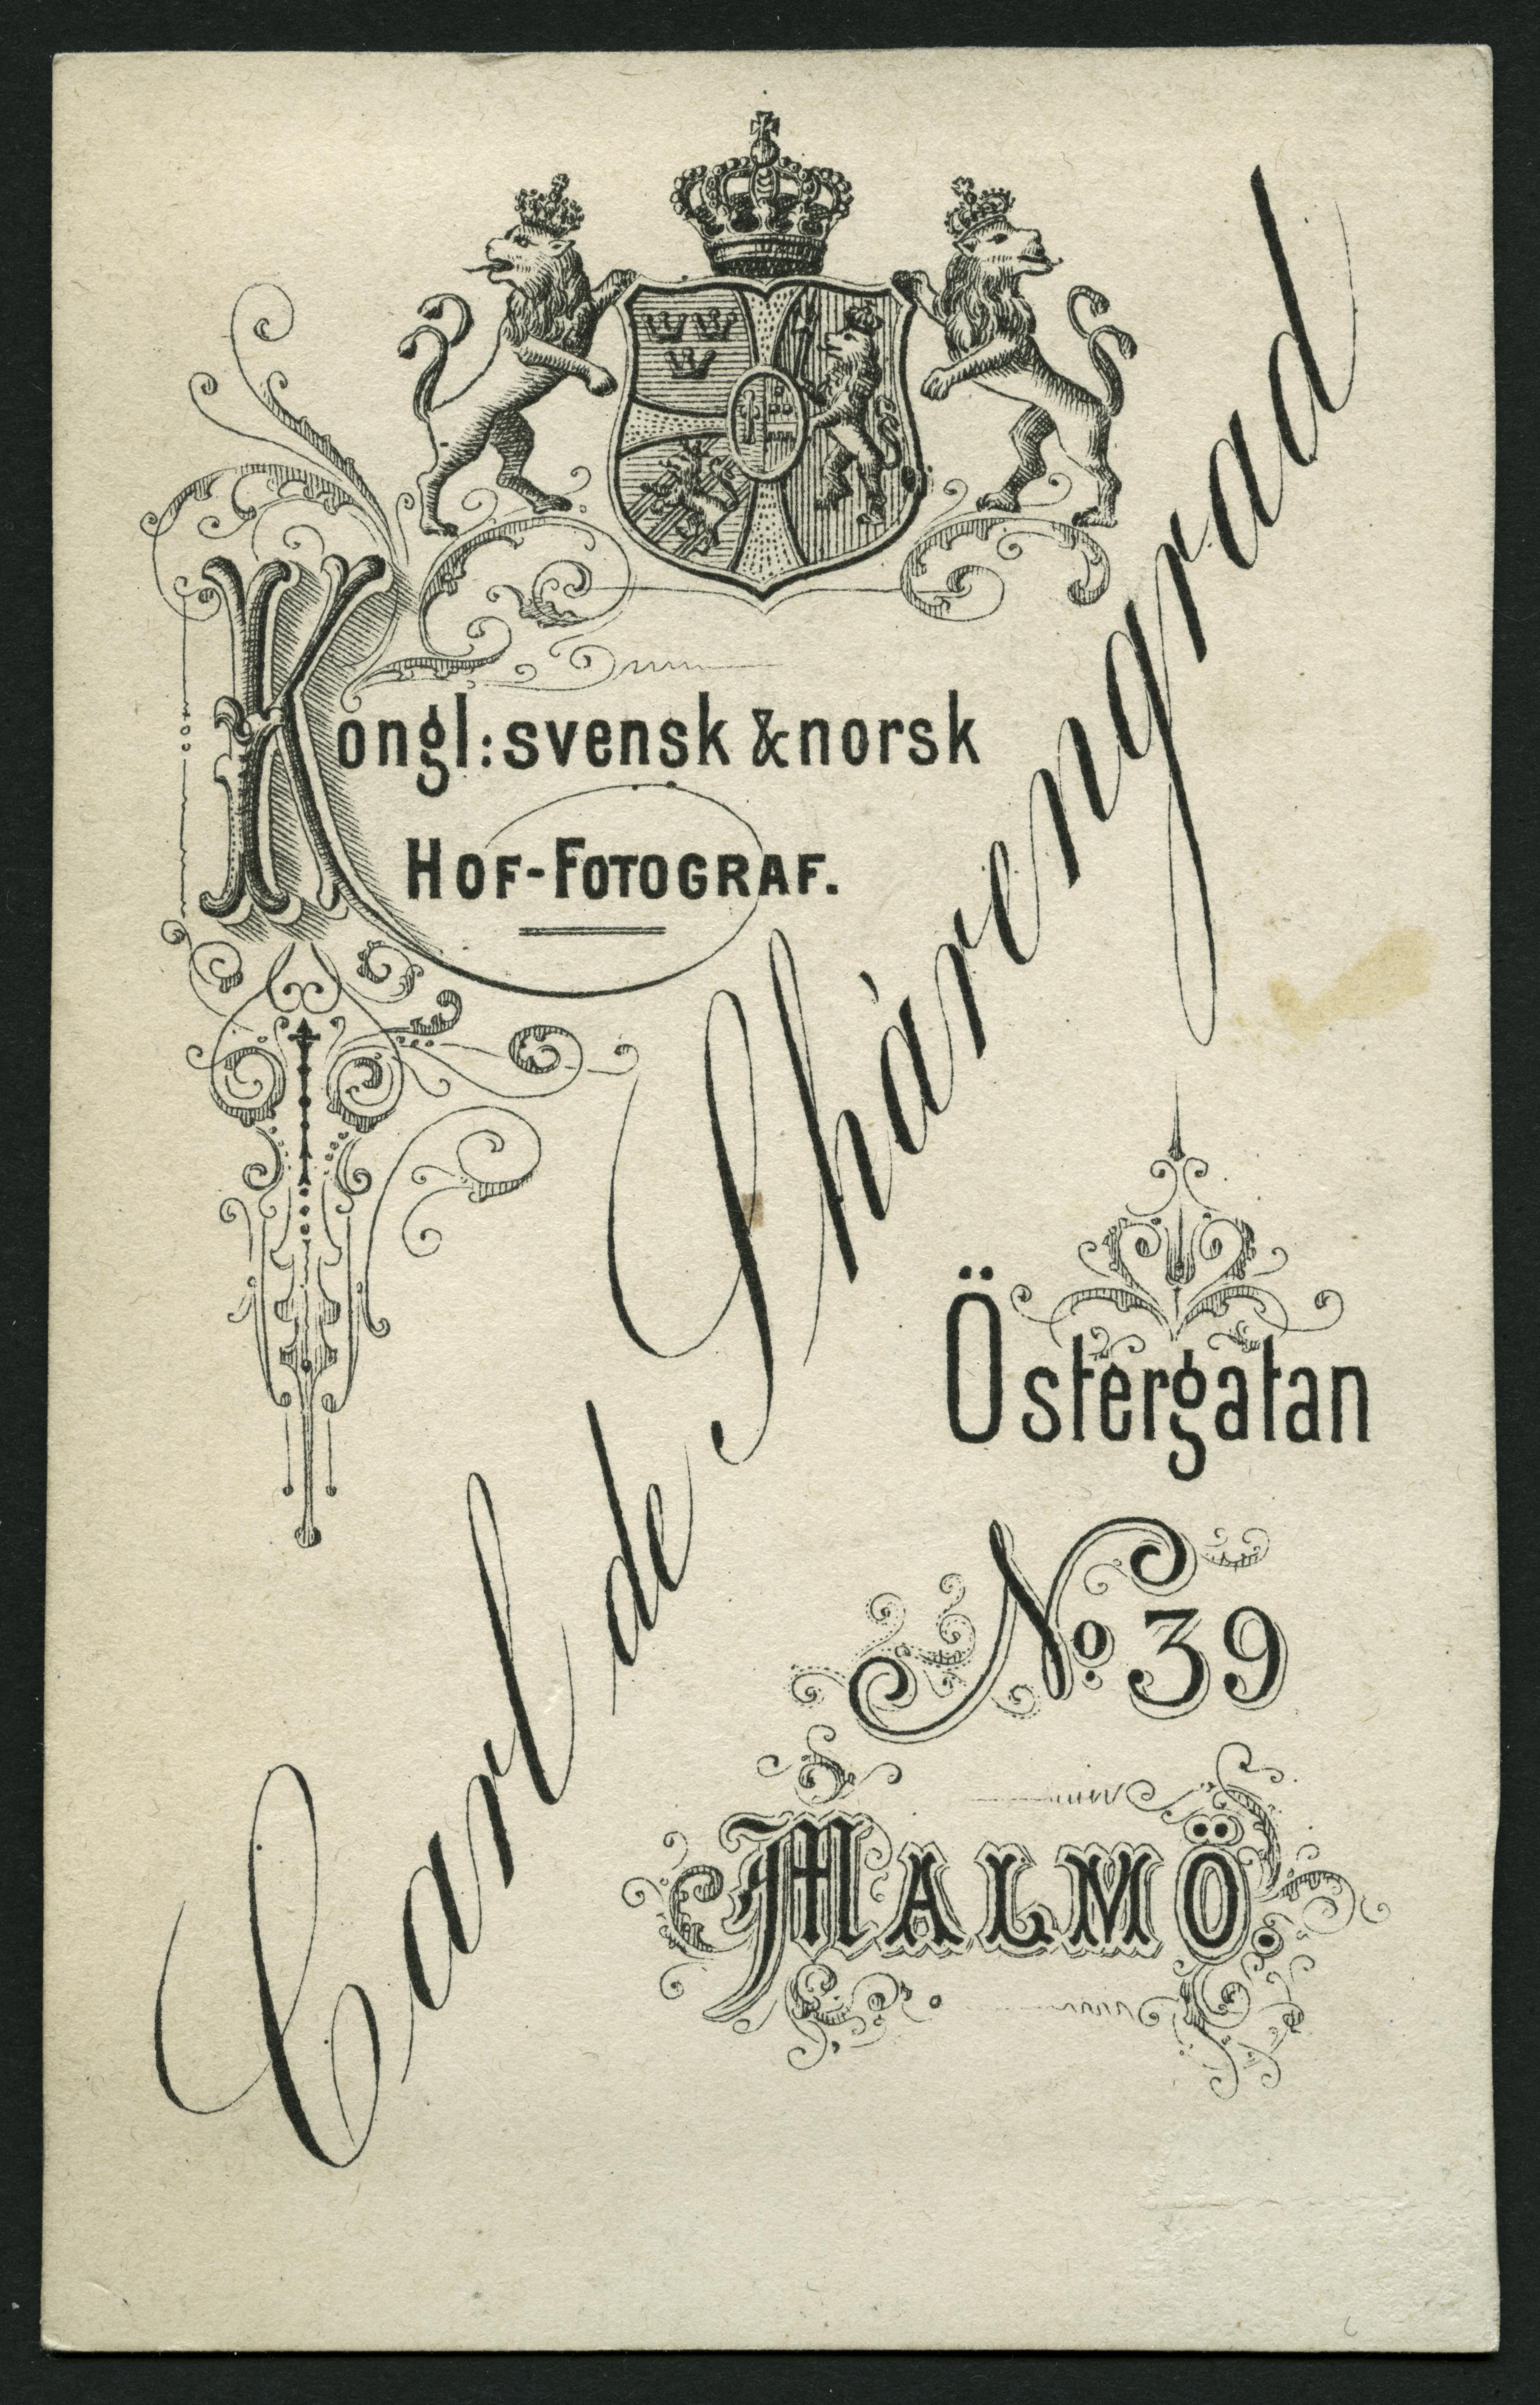 Kongl: svensk & norsk
HOF-FOTOGRAF.
Carl de Shàrengrad
Östergatan
No. 39
MALMÖ.